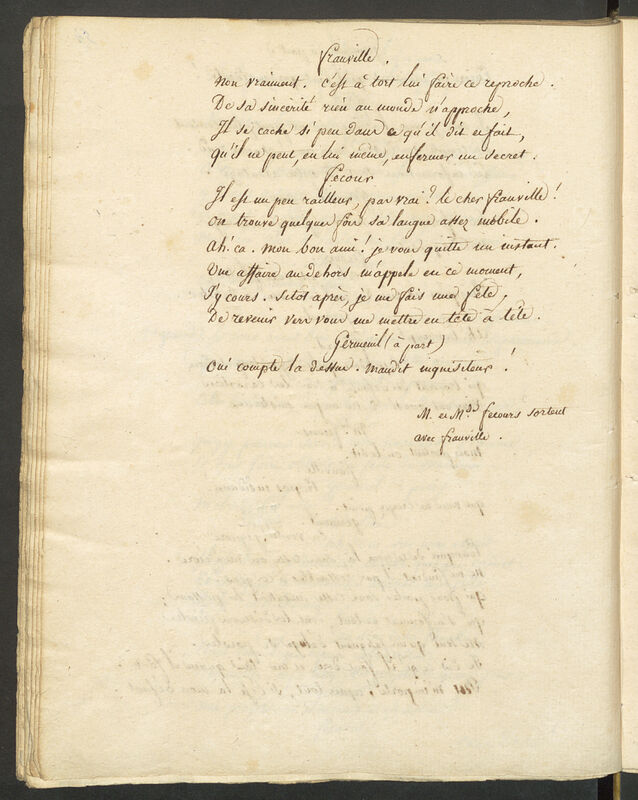 frauville.
non vraiment. c'est à tort lui faire ce reproche.
De sa sincérité rien au monde n'approche,
Il se cache si peu dans ce qu'il dit en fait,
qu'il ne peut, en lui même, enfermer un secret.
fecour
Il est un peu railleur, pas vrai? le cher frauville!
On trouve quelque fois sa langue assez mobile.
Ah! ca. mon bon ami! je vous quitte un instant.
Une affaire au dehors m'appele en ce moment,
J'y cours. sitot après, je me fais une fête,
De revenir vers vous me mettre en tête à tête.
Germeuil (à part)
Oui compte la dessus. maudit inquisiteur!
M. et Mde fecours sortent
avec frauville.